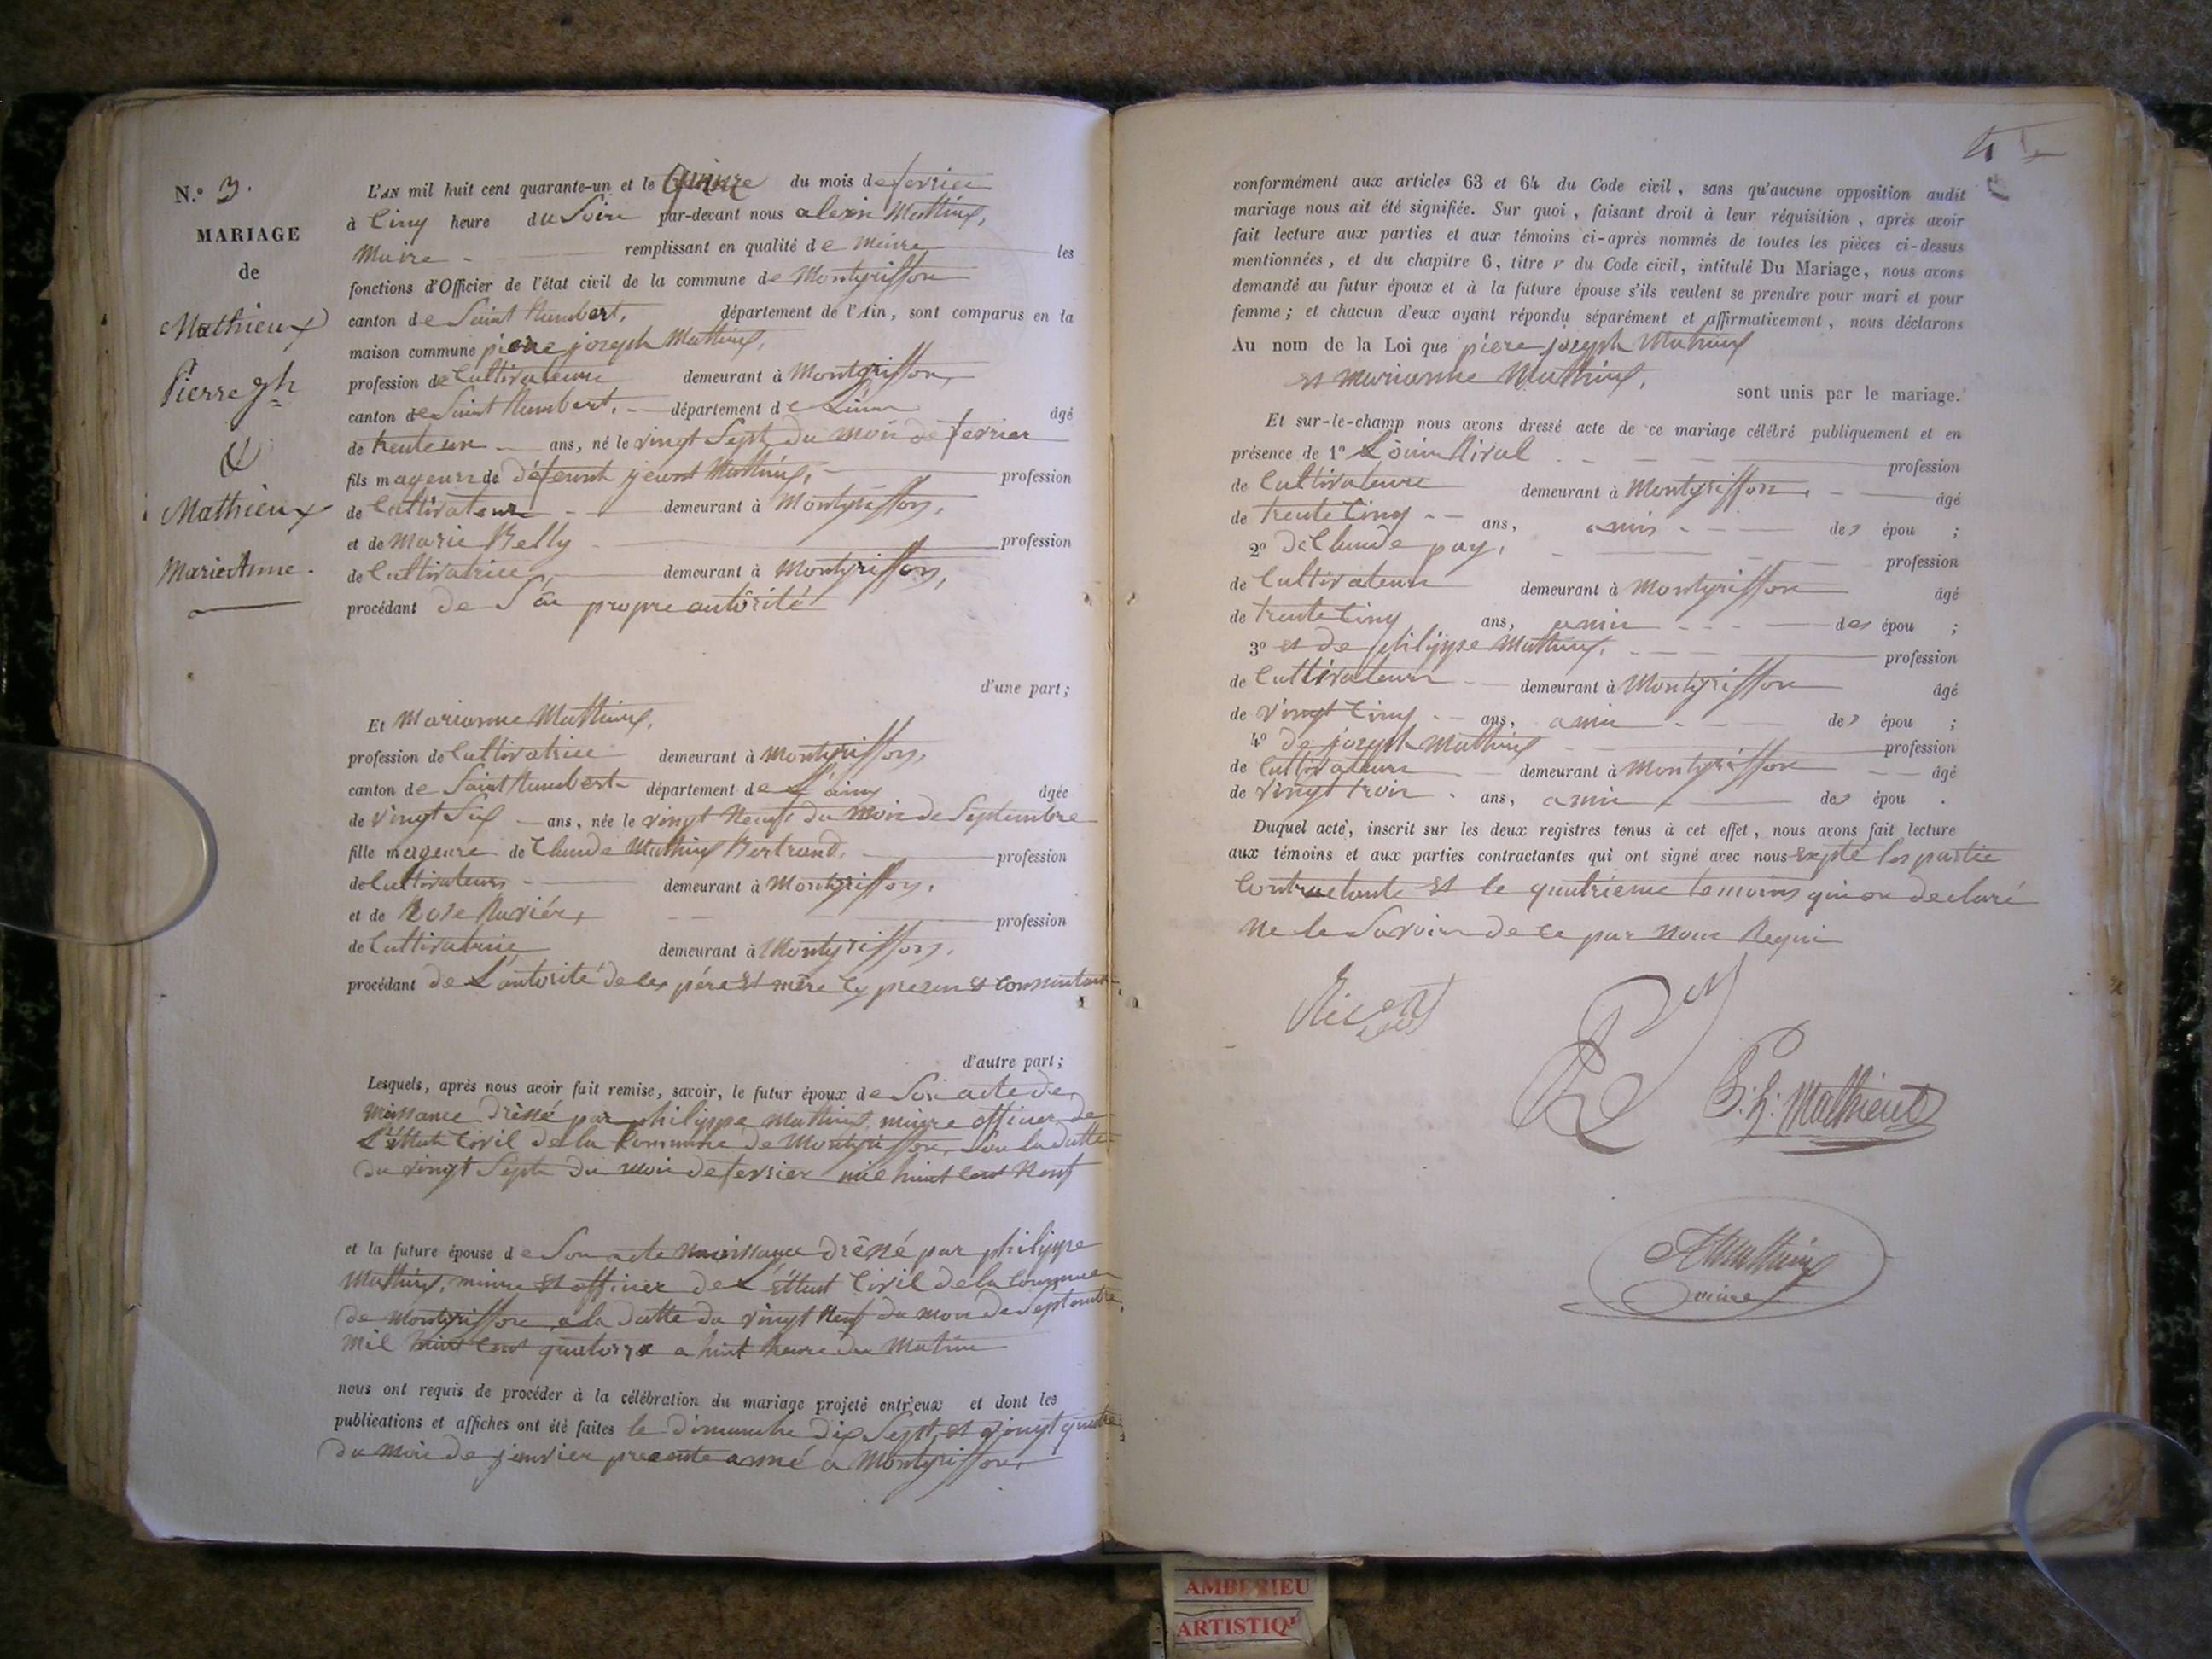 N.° 3.
MARIAGE
de
Mathieux
Pierre Jh
&
Mathieux
Marie Anne.
L'AN mil huit cent quarante-un et le Quinze du mois de fevrier
à Cinq heure du Soire par-devant nous alexis Mathieux,
Maire remplissant en qualité de Maire les
fonctions d'Officier de l'état civil de la commune de Montgriffon
canton de Saint Rambert, département de l'Ain, sont comparus en la
maison commune pierre joseph Mathieux,
profession de Cultivateur demeurant à Montgriffon,
canton de Saint Rambert, département de L'ain âgé
de trenteun ans, né le vingt Sept du mois de fevrier
fils mageur de défeunt jean Mathieux, profession
de Cultivateur demeurant à Montgriffon,
et de Marie Belly profession
de Cultivatrice, demeurant à Montgriffon,
procédant de Sa propre autôrité
d'une part;
Et Marianne Mathieux,
profession de Cultivatrice demeurant à Montgriffon,
canton de Saint Rambert département de L'ain âgée
de vingt Six ans, née le vingt Neuf du Mois de Septembre
fille mageure de Claude Mathieux Bertrand, profession
de Cultivateur demeurant à Montgriffon,
et de Rose Ravier, profession
de Cultivatrice demeurant à Montgriffon,
procédant de L'autorité de ses père et mère Cy presen et consentant
d'autre part;
Lesquels, après nous avoir fait remise, savoir, le futur époux de Son acte de
naissance drêssé par philippe Mathieux maire officier de
L'êttat Civil de la Commune de Montgriffon, Sou la datte
du vingt Sept du mois de fevrier mil huit cent Neuf
et la future épouse de Son acte naissance drêssé par philippe
Mathieux, maire et officier de L'êttat Civil de la Commune
de Montgriffon a la datte du vingt Neuf du mois de Septembre,
mil huit cent quatorze a huit heure du Matin
nous ont requis de procéder à la célébration du mariage projeté entr'eux et dont les
publications et affiches ont été faites le dimanche dix Sept, et vingt quatre
du mois de janvier presente anné a Montgriffon,
conformément aux articles 63 et 64 du Code civil, sans qu'aucune opposition audit
mariage nous ait été signifiée. Sur quoi, faisant droit à leur réquisition, après avoir
fait lecture aux parties et aux témoins ci-après nommés de toutes les pièces ci-dessus
mentionnées, et du chapitre 6, titre v du Code civil, intitulé Du Mariage, nous avons
demandé au futur époux et à la future épouse s'ils veulent se prendre pour mari et pour
femme; et chacun d'eux ayant répondu séparément et affirmativement, nous déclarons
Au nom de la Loi que piere joseph Mathieux
et Marianne Mathieux, sont unis par le mariage.
Et sur-le-champ nous avons dressé acte de ce mariage célébré publiquement et en
présence de 1° profession
de Cultivateur demeurant à Montgriffon, âgé
de trente Cinq ans, amis des épou ;
2° de Claude pay, profession
de Cultivateur demeurant à Montgriffon âgé
de trente Cinq ans, amis des épou ;
3° et de philippe Mathieux, profession
de Cultivateur demeurant à Montgriffon âgé
de vingt Cinq ans, amis des épou ;
4° de joseph Mathieux profession
de Cultivateur demeurant à Montgriffon âgé
de vingt trois ans, amis des épou .
Duquel acte, inscrit sur les deux registres tenus à cet effet, nous avons fait lecture
aux témoins et aux parties contractantes qui ont signé avec nous expté les partie
Contractante et le quatrieme temoins qui on declaré
Ne le Savoir de ce par Nous Requi
P. h. Mathieux
A Mathieux
maire
AMBERIEU
ARTISTIQ